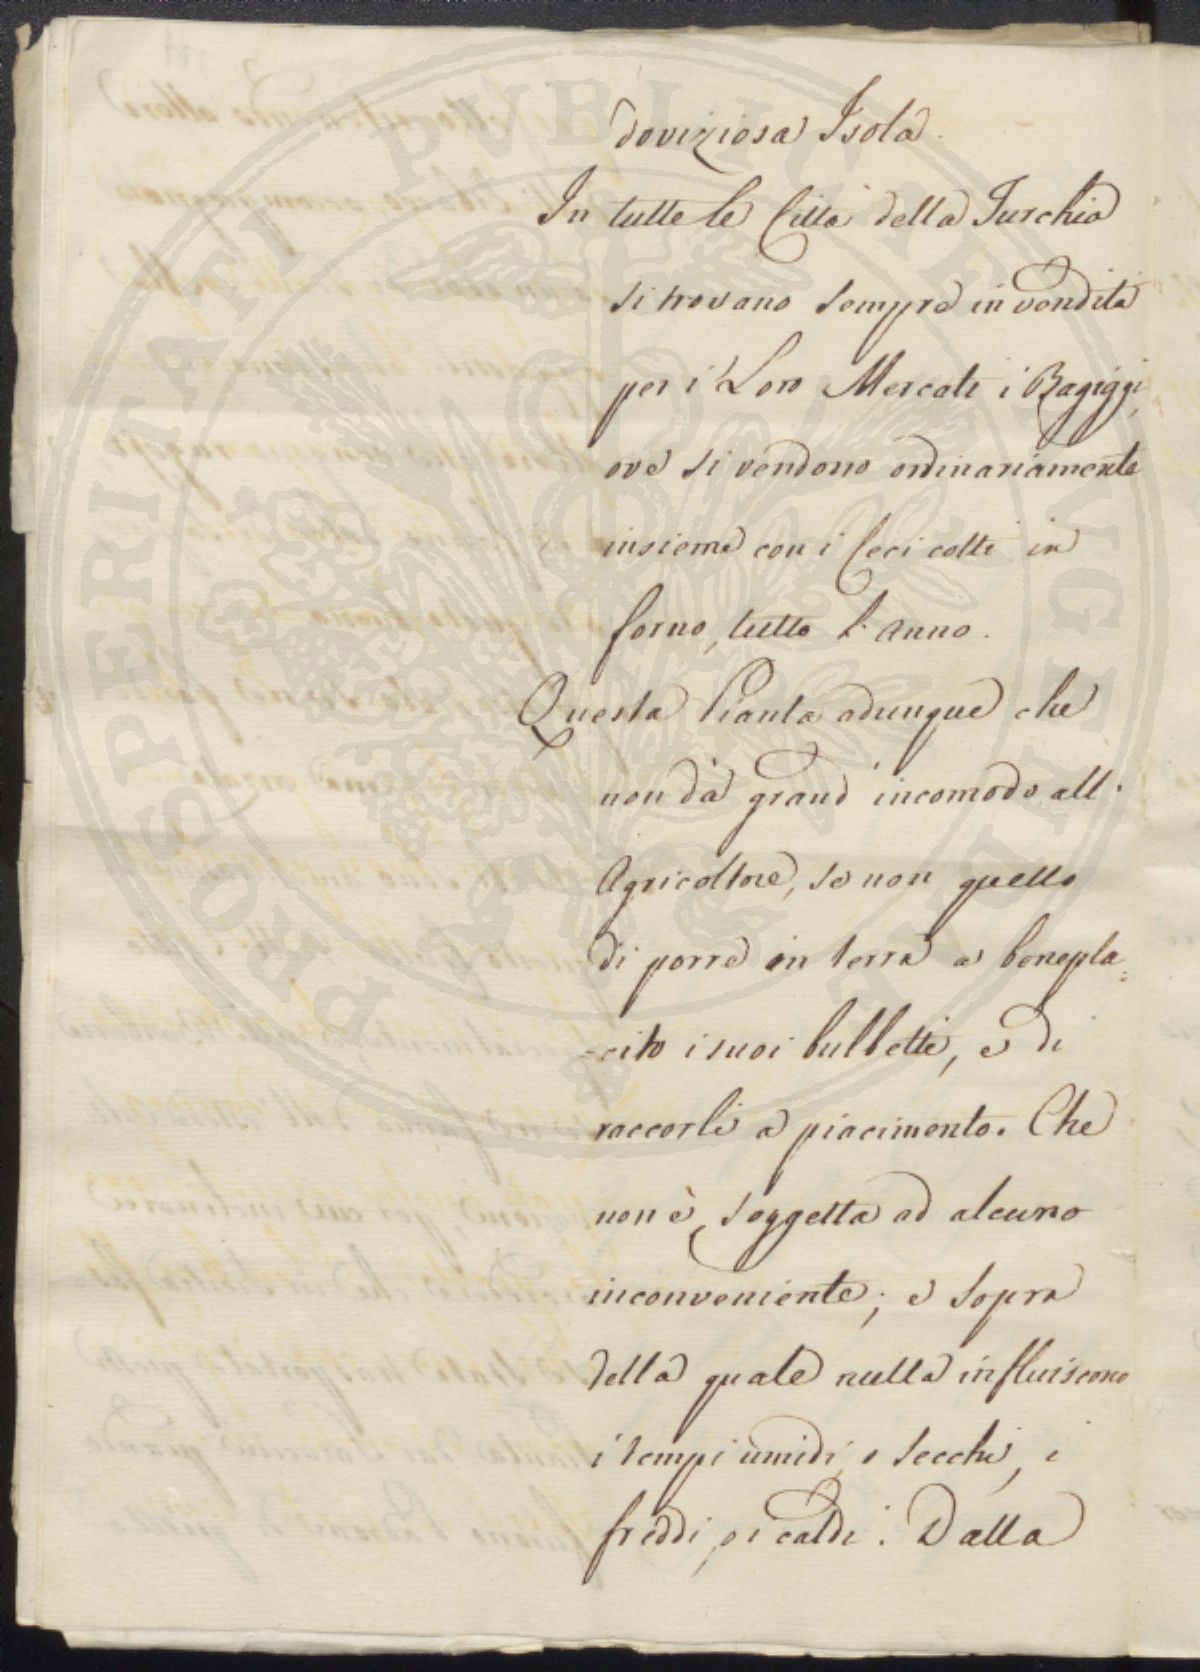 doviziosa Isola.
In tutte le Città della Turchia
si trovano sempre in vendita
per i Loro Mercati i Bagiggi,
ove si vendono ordinariamente
insieme con i Ceci cotti in
forno, tutto l'anno.
Questa Pianta adunque che
non dà grand incomodo all'
Agricoltore, se non quello
di porre in terra a benepla=
=cito i suoi bulbetti, e di
raccorli a piacimento. Che
non è soggetta ad alcuno
inconveniente; e sopra
della quale nulla influiscono
i tempi umidi, o secchi, i
freddi, o i caldi. Dalla
PROSPERITATI PUBLICAE AUGENDAE